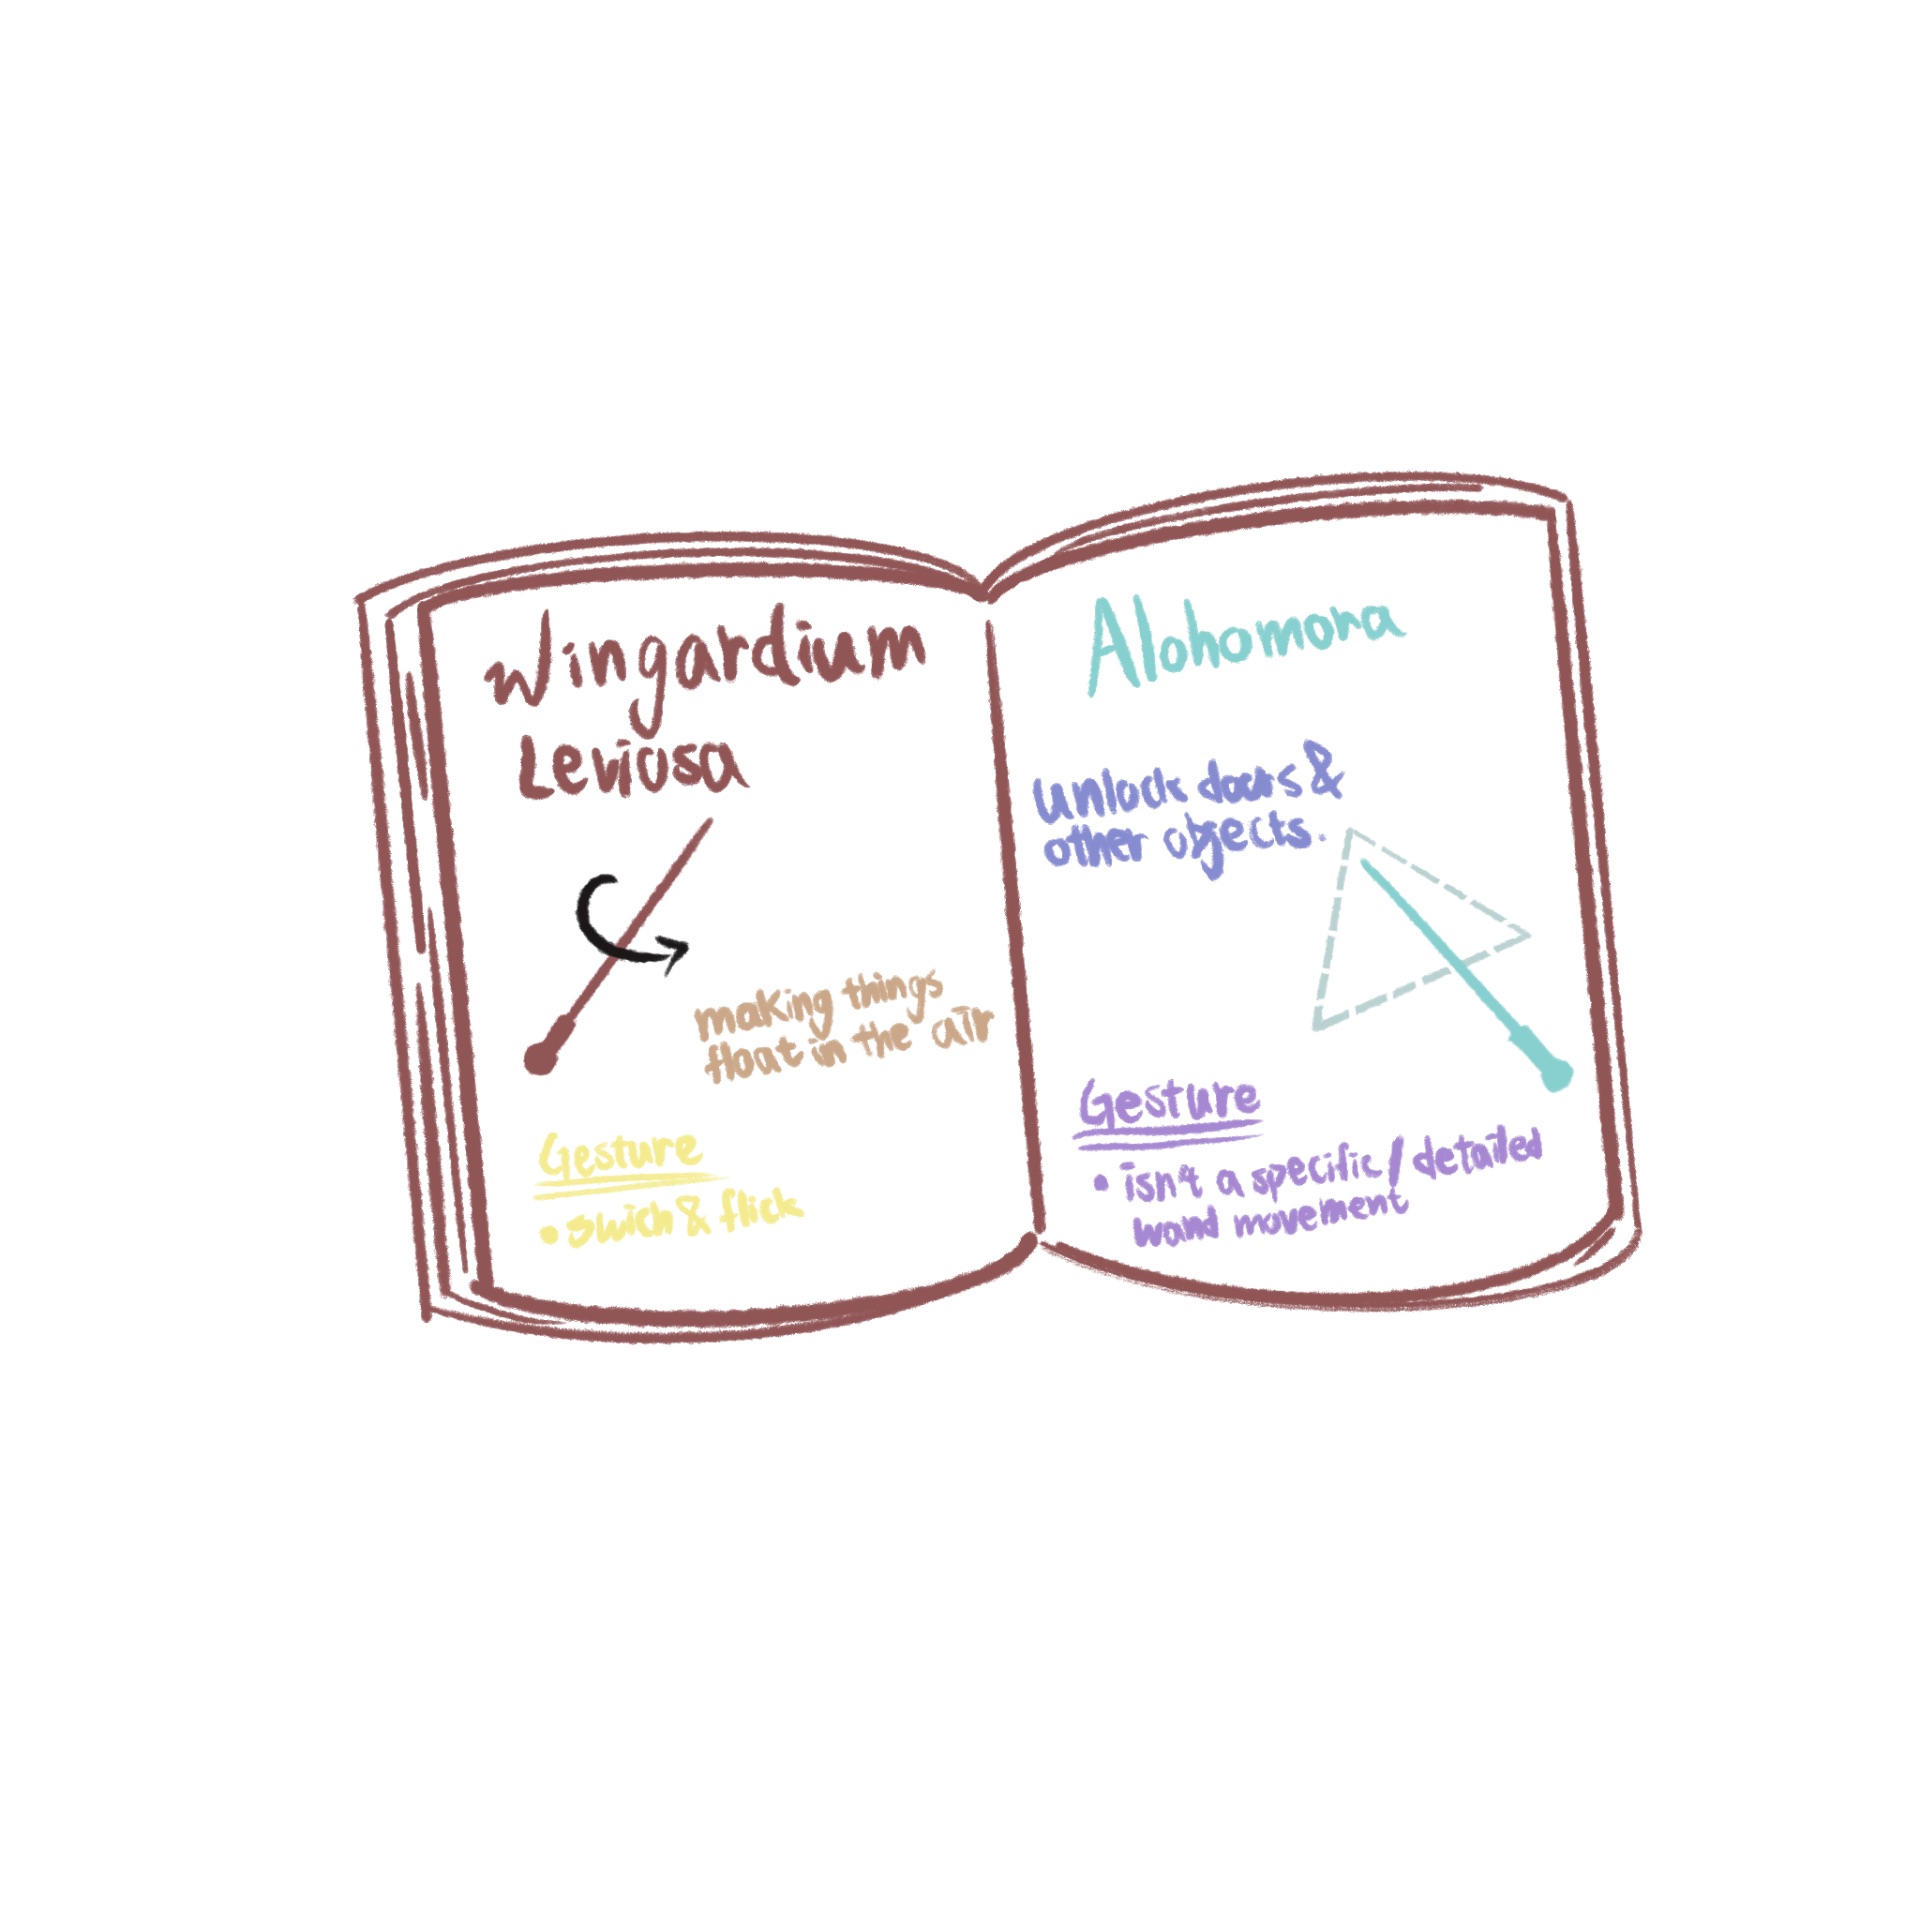 Wingardium
Leviosa
making things
float in the air
Gesture
• swich & flick
Alohomora
unlock doors &
other objects.
Gesture
• isn't a specific / detailed
wand movement